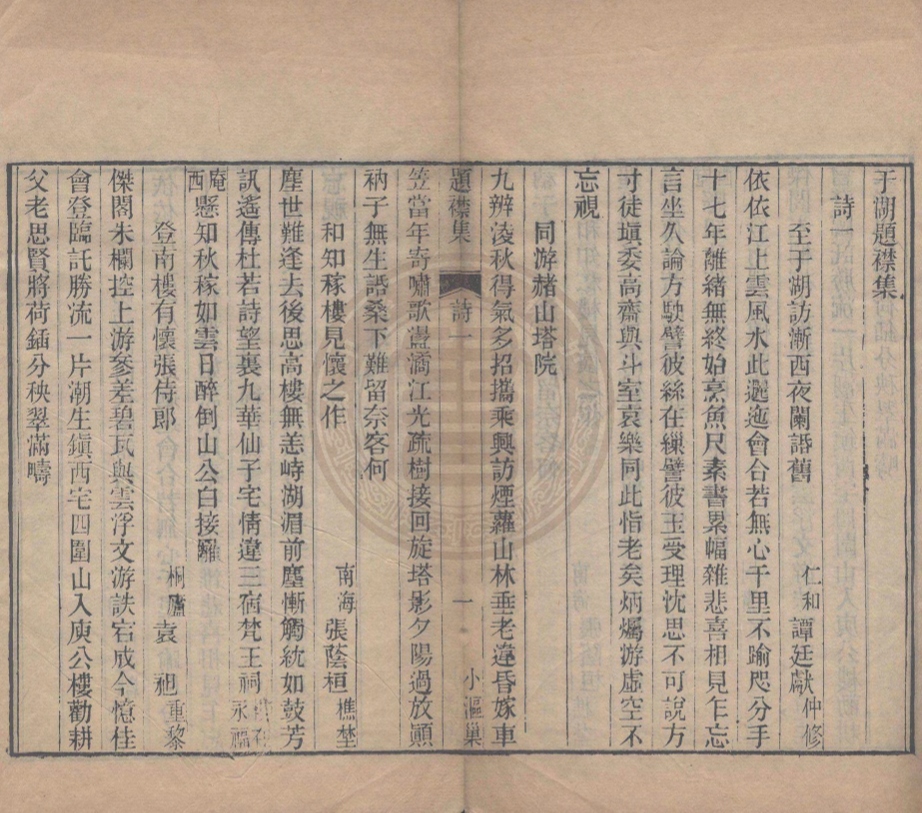 于湖題襟集
詩一
至于湖訪漸西夜闌話舊 仁和譚廷獻仲修
依依江上雲風水此邂逅會合若無心千里不踰咫分手
十七年離緒無終始烹魚尺素書累幅雜悲喜相見乍忘
言坐久論方駛譬彼絲在繅譬彼玉受理沈思不可說方
寸徒塡委高齋與斗室哀樂同此恉老矣炳燭游虛空不
忘視
同游赭山塔院
九辨淩秋得氣多招攜乘興訪煙蘿山林垂老違昏嫁車
題襟集 詩一 一 小漚巢
笠當年寄嘯歌盪潏江光疏樹接回旋塔影夕陽過放顚
衲子無生話桑下難留奈客何
和知稼樓見懷之作 南海張蔭桓樵埜
塵世難逢去後思高樓無恙峙湖湄前塵慚觸紞如鼓芳
訊遙傳杜若詩望裏九華仙子宅情違三宿梵王祠
永福
庵西懸知秋稼如雲日醉倒山公白接䍦
登南樓有懷張侍郎 桐廬袁昶重黎
傑閣朱欄控上游參差碧瓦與雲浮文游詄宕成今憶佳
會登臨託勝流一片潮生鎭西宅四圍山入庾公樓勸耕
父老思賢將荷鍤分秧翠滿疇